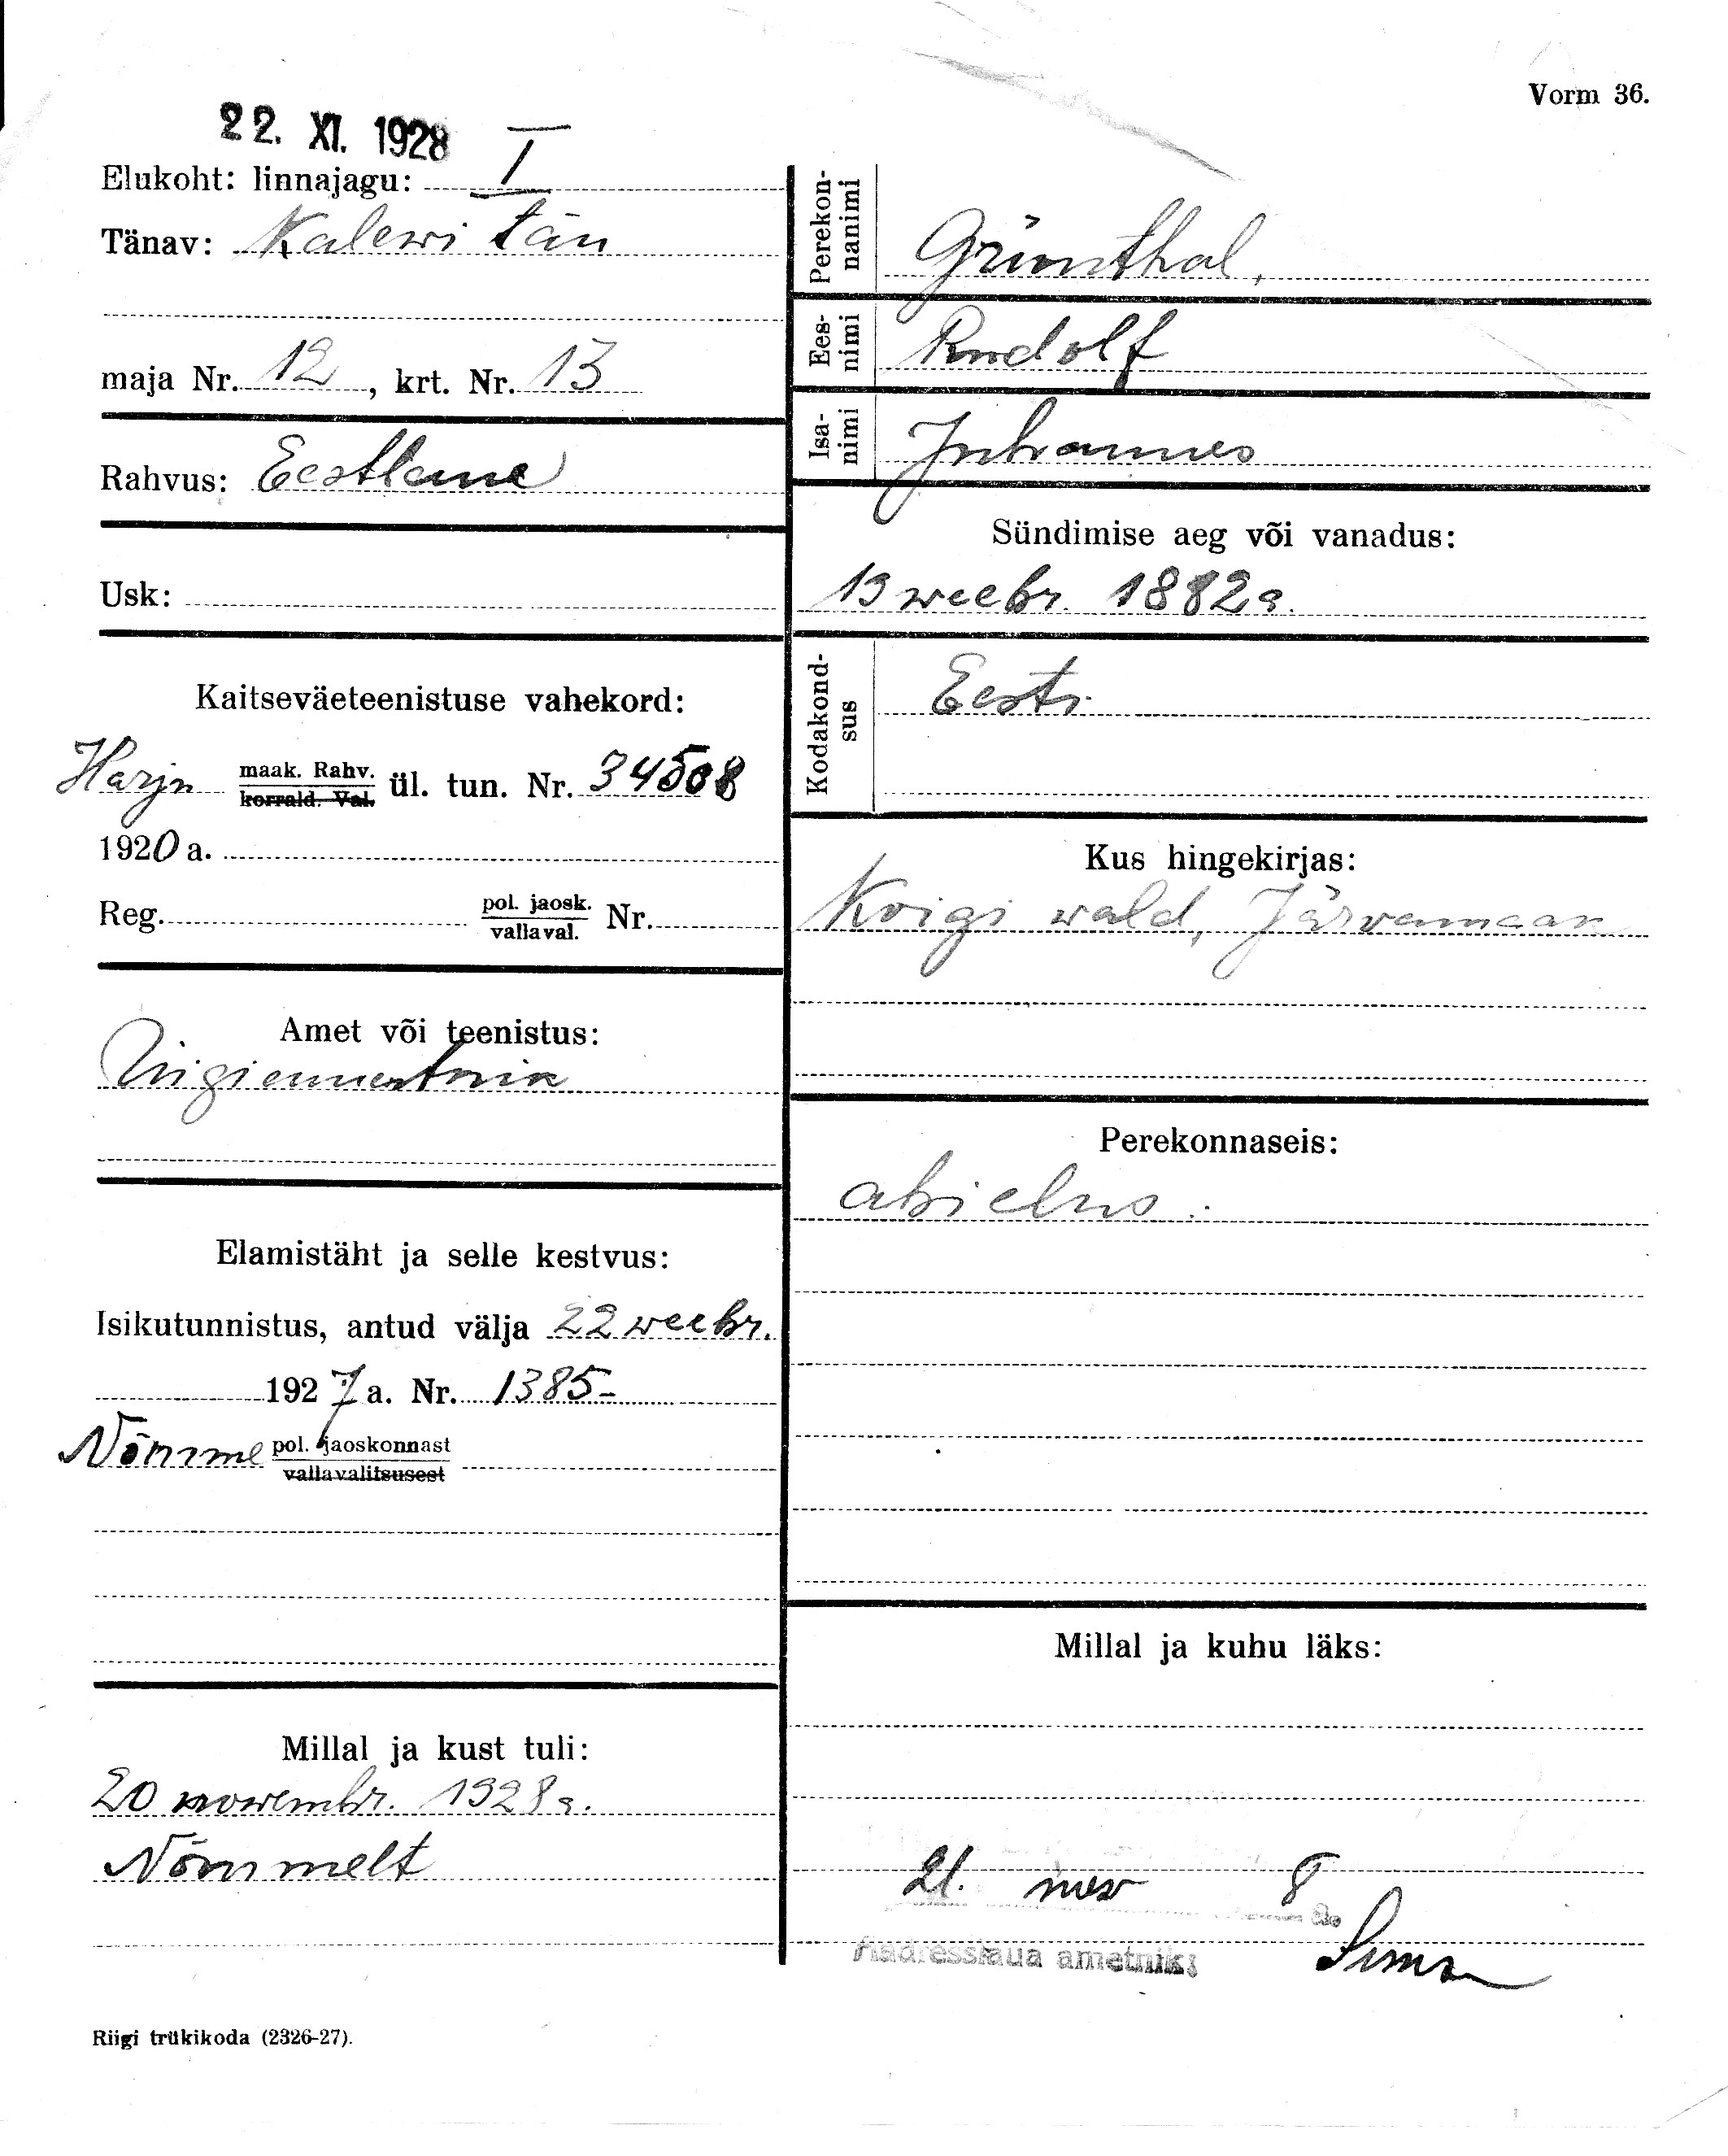 Vorm 36.
22. XI. 1928
Elukoht: linnajagu: I
Tänav: Kalewi tän
maja Nr. 12, krt. Nr. 13
Rahvus: Eestlane
Usk:
Kaitseväeteenistuse vahekord:
Harju maak. Rahv. korrald. Val. ül. tun. Nr. 34508
1920 a.
Reg. pol. jaosk. vallaval. Nr.
Amet või teenistus:
Riigiametnik
Elamistäht ja selle kestvus:
Isikutunnistus, antud välja 22 weebr.
1927 a. Nr. 1385-
Nõmme pol. jaoskonnast vallavalitsusest
Millal ja kust tuli:
20 nowembr. 1928 a.
Nõmmelt
Perekonnanimi Grünthal,
Eesnimi Rudolf
Isanimi Juhannes
Sündimise aeg või vanadus:
13 weebr. 1882 a.
Kodakondsus Eesti
Kus hingekirjas:
Koigi wald, Järvamaan
Perekonnaseis:
abielus.
Millal ja kuhu läks:
21. nov 8 a.
Aadresslaua ametnik:
Riigi trükikoda (2326-27).